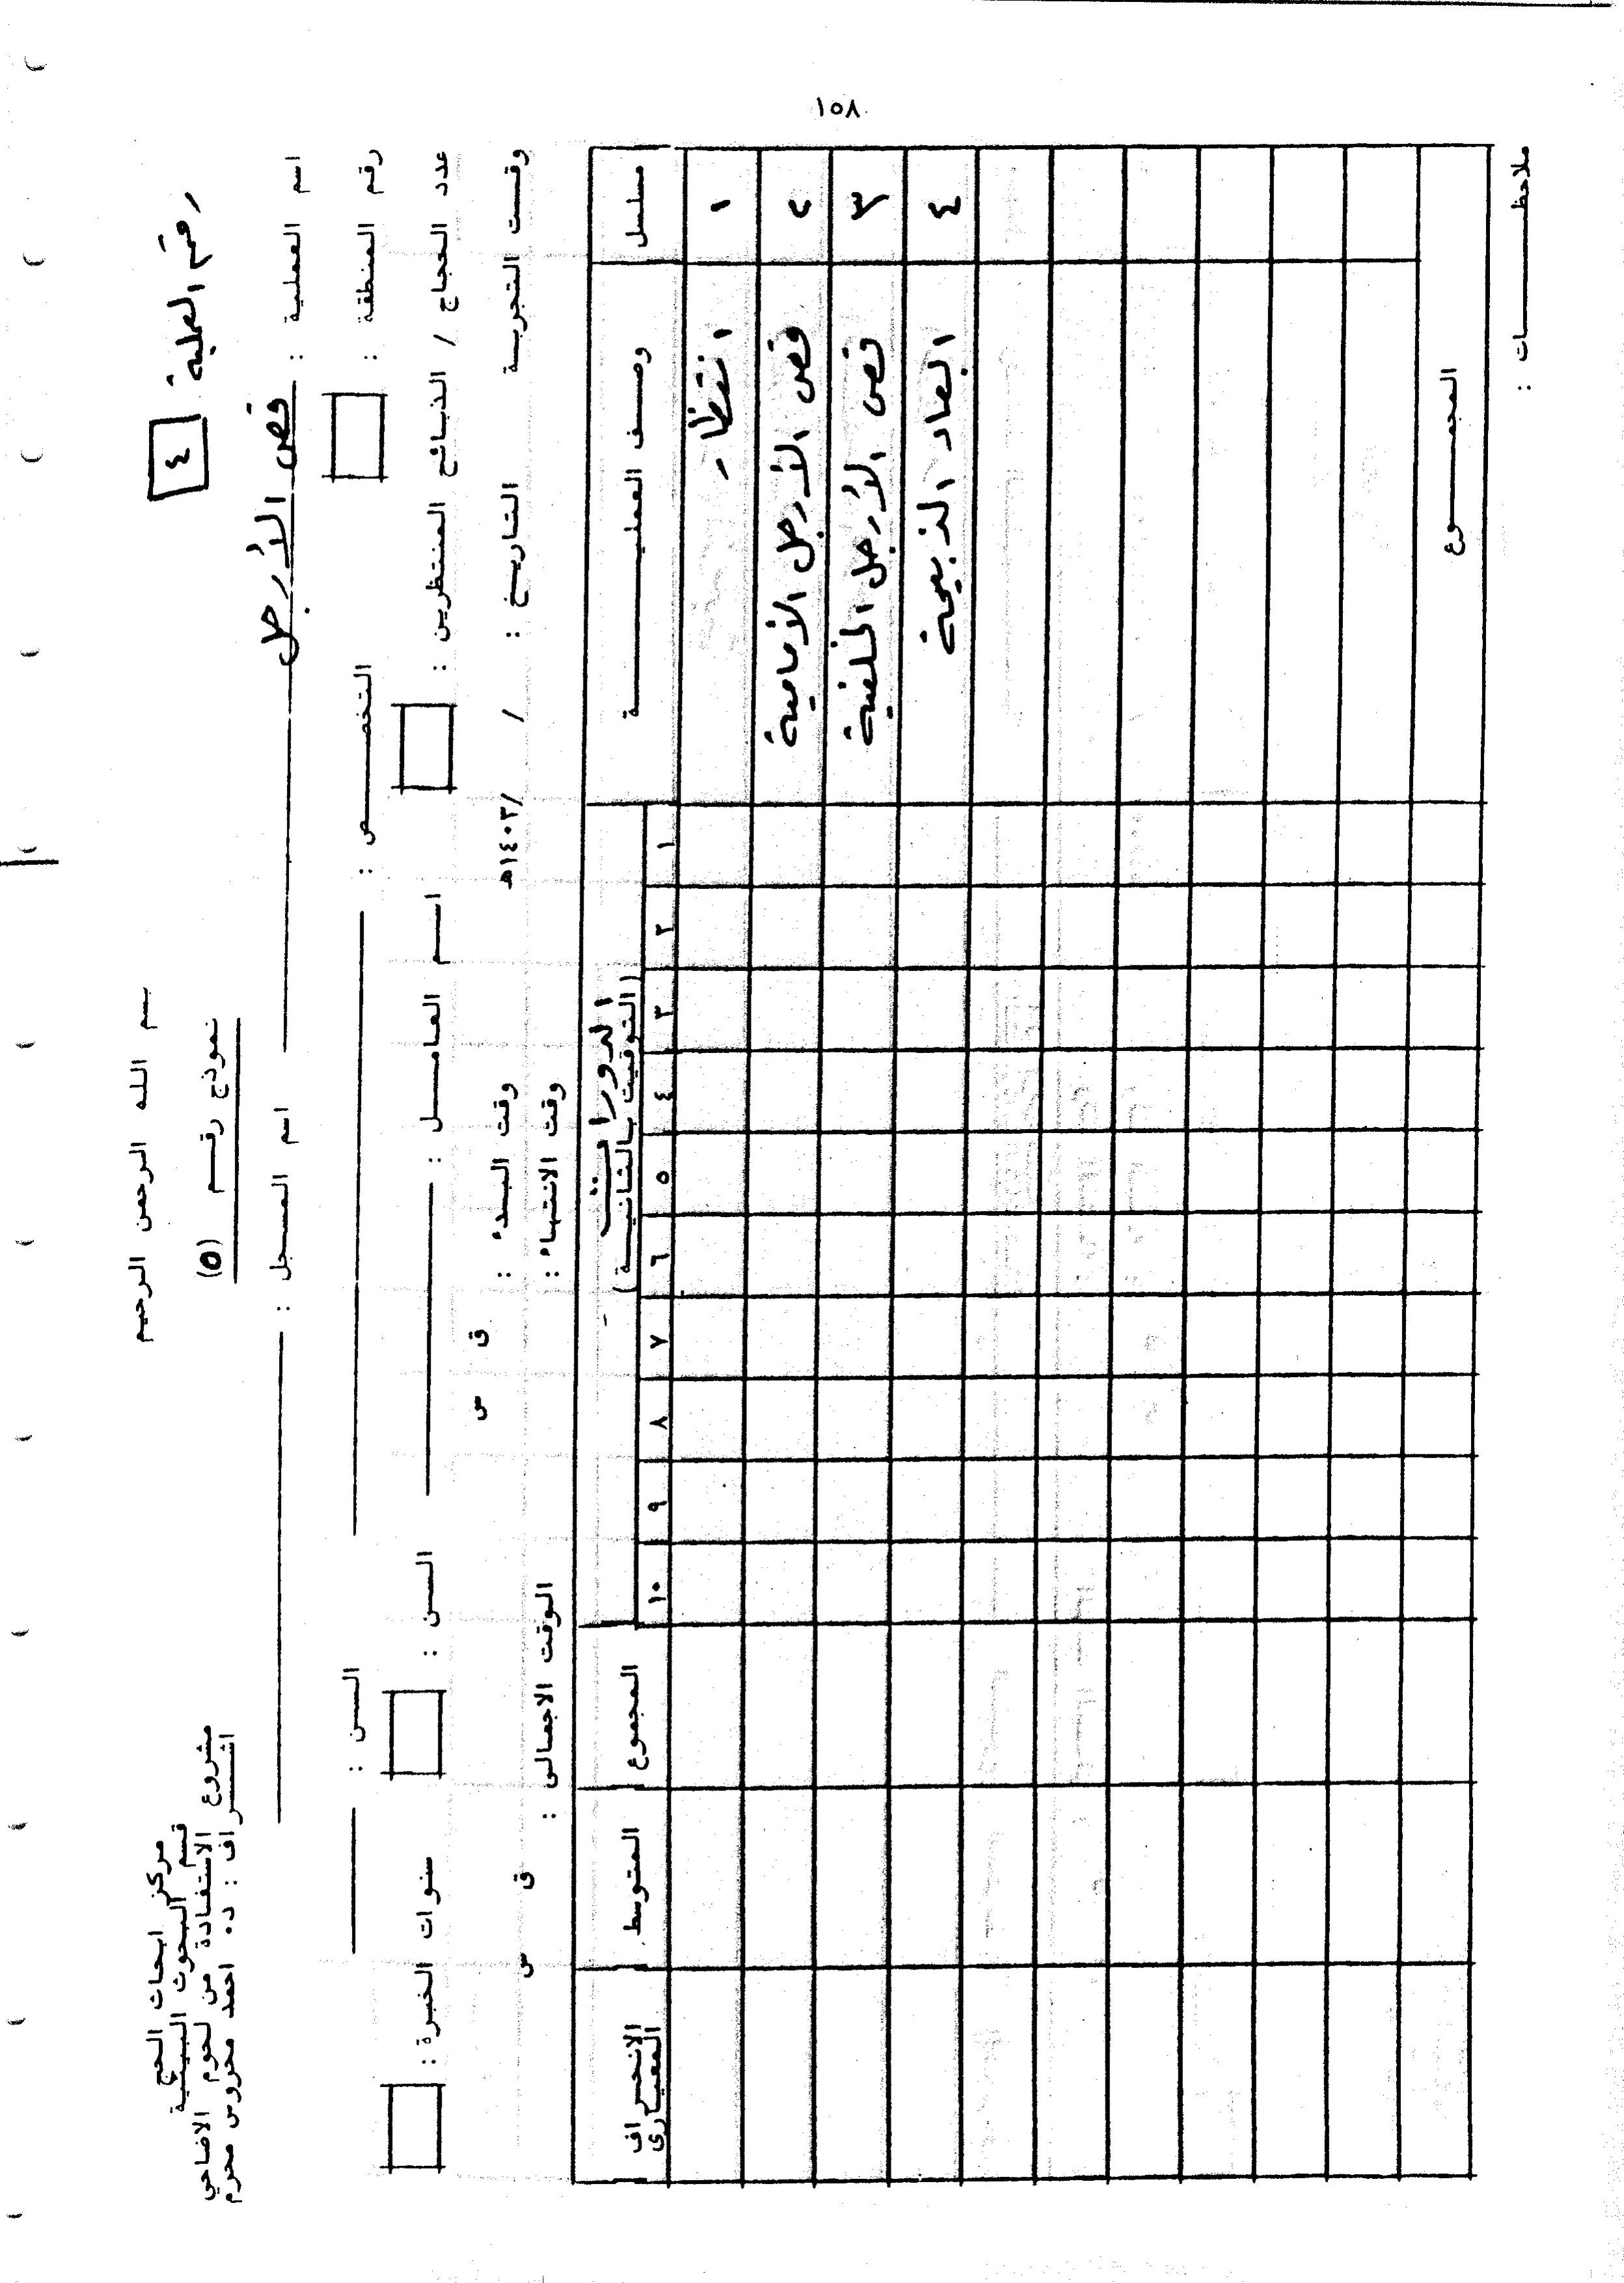 ١٥٨
بسم الله الرحمن الرحيم
مركز ابحاث الحج
قسم البحوث البيئية
مشروع الاستفادة من لحوم الاضاحي
اشراف : د. احمد محروس محرم
رقم العملية ٤
نموذج رقم (٥)
اسم العملية : قص الأرجل اسم المسجل :
رقم المنطقة : التخصص : السن :
عدد الحجاج / الذبائح المنتظرين : اسم العامل : السن : سنوات الخبرة :
وقت التجربة التاريخ : / / ١٤٠٣هـ وقت البدء : ق س
وقت الانتهاء : الوقت الاجمالى : ق س
مسلسل وصف العملية الدورات (التوقيت بالثانية) المجموع المتوسط الانحراف المعيارى
١ ٢ ٣ ٤ ٥ ٦ ٧ ٨ ٩ ١٠
١ انتظار
٢ قص الأرجل الأمامية
٣ قص الأرجل الخلفية
٤ ابعاد الذبيحة
المجموع
ملاحظات :